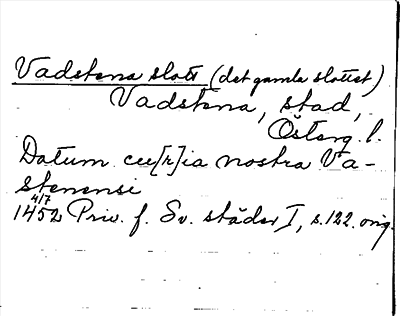 Vadstena slott (det gamla slottet)
Vadstena, stad,
Österg. l.
Datum cu[r]ia nostra Va-
stenensi
4/7
1452 Priv. f. Sv. städer I, s. 122. orig.